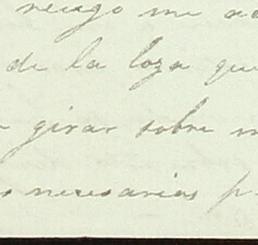 me
de la loza que
girar sobre
necesarias p